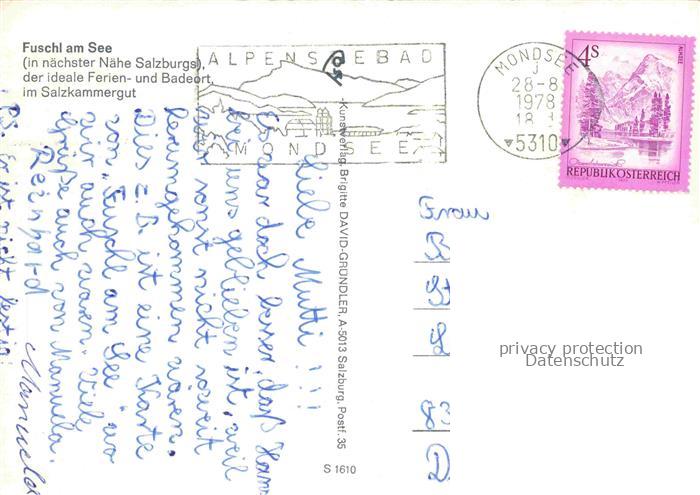 Fuschl am See
(in nächster Nähe Salzburgs),
der ideale Ferien- und Badeort,
im Salzkammergut
ALPENSEEBAD
MONDSEE
MONDSEE
28-8
1978
18
5310
4S
ALMSEE
REPUBLIK ÖSTERREICH
Kunstverlag, Brigitte DAVID-GRÜNDLER, A-5013 Salzburg, Postf. 35
S 1610
Liebe Mutti!!!
Es war doch besser, daß
bei uns geblieben ist, weil
wir sonst nicht soweit
herumgekommen wären.
Dies z.B. ist eine Karte
von "Fuschl am See", wo
wir auch waren. Viele
Grüße auch von Manuela.
Reinhard
Manuela
PS. Er ist nicht
Frau
R
St
L
83
D
privacy protection
Datenschutz